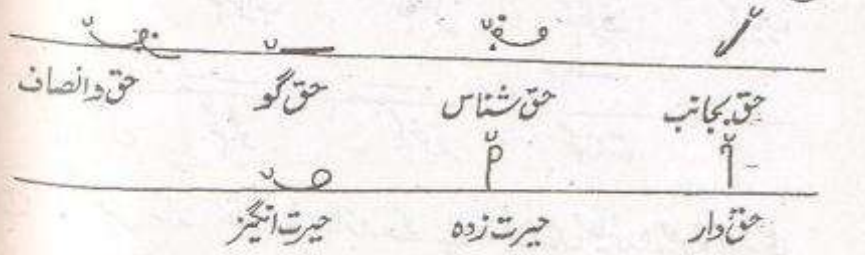 حق بجانب حق شناس حق گو حق وانصاف
حق دار حیرت زدہ حیرت انگیز